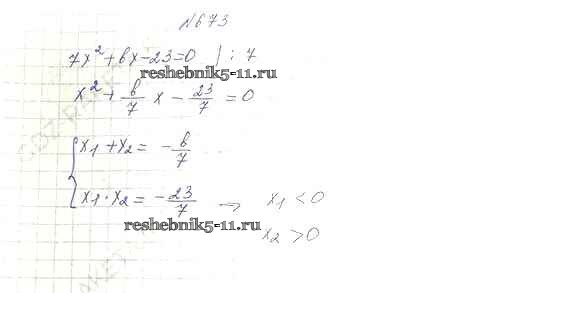 №673
7x² + bx - 23 = 0 | : 7
reshebnik5-11.ru
x² + b/7 x - 23/7 = 0
{ x₁ + x₂ = - b/7
x₁ · x₂ = - 23/7 → x₁ < 0
reshebnik5-11.ru
x₂ > 0